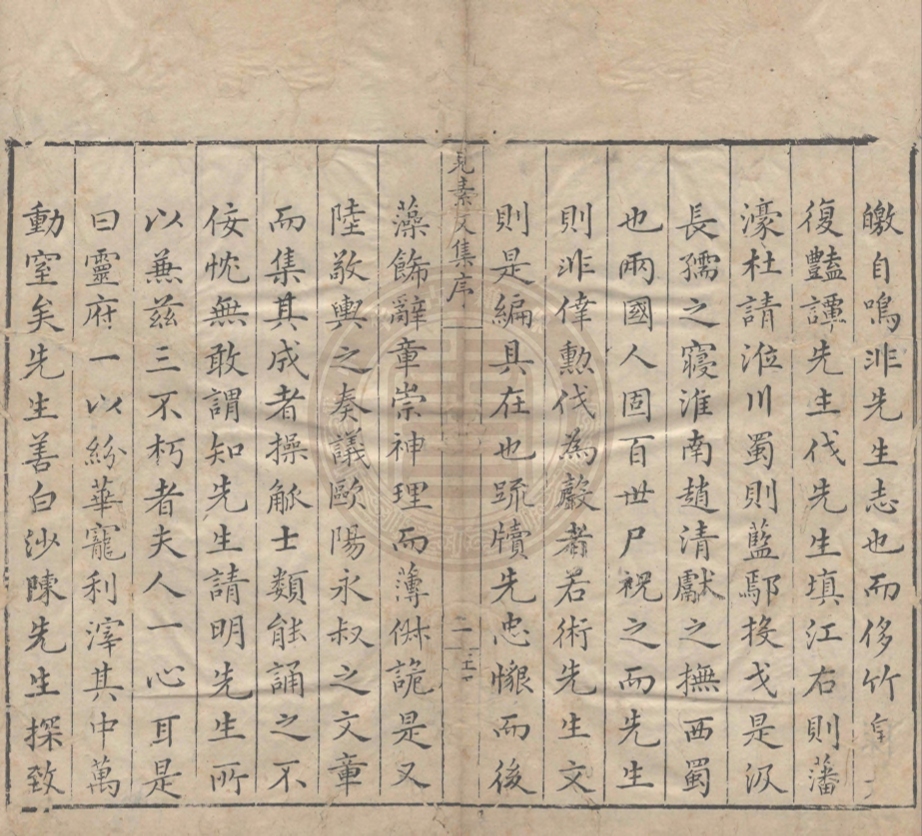 皦自鳴非先生志也而侈竹帛
復豔譚先生伐先生填江右則藩
濠杜請涖川蜀則藍鄢投戈是汲
長孺之寢淮南趙清獻之撫西蜀
也兩國人固百世尸祝之而先生
則非侈勲伐為厳者若術先生文
則是編具在也疏牘先忠懇而後
見素文集序
二
藻飾辭章崇神理而薄俶詭是又
陸敬輿之奏議歐陽永叔之文章
而集其成者操觚士類能誦之不
佞忱無敢謂知先生請明先生所
以兼茲三不朽者夫人一心耳是
曰靈府一以紛華寵利滓其中萬
動窒矣先生善白沙陳先生探致